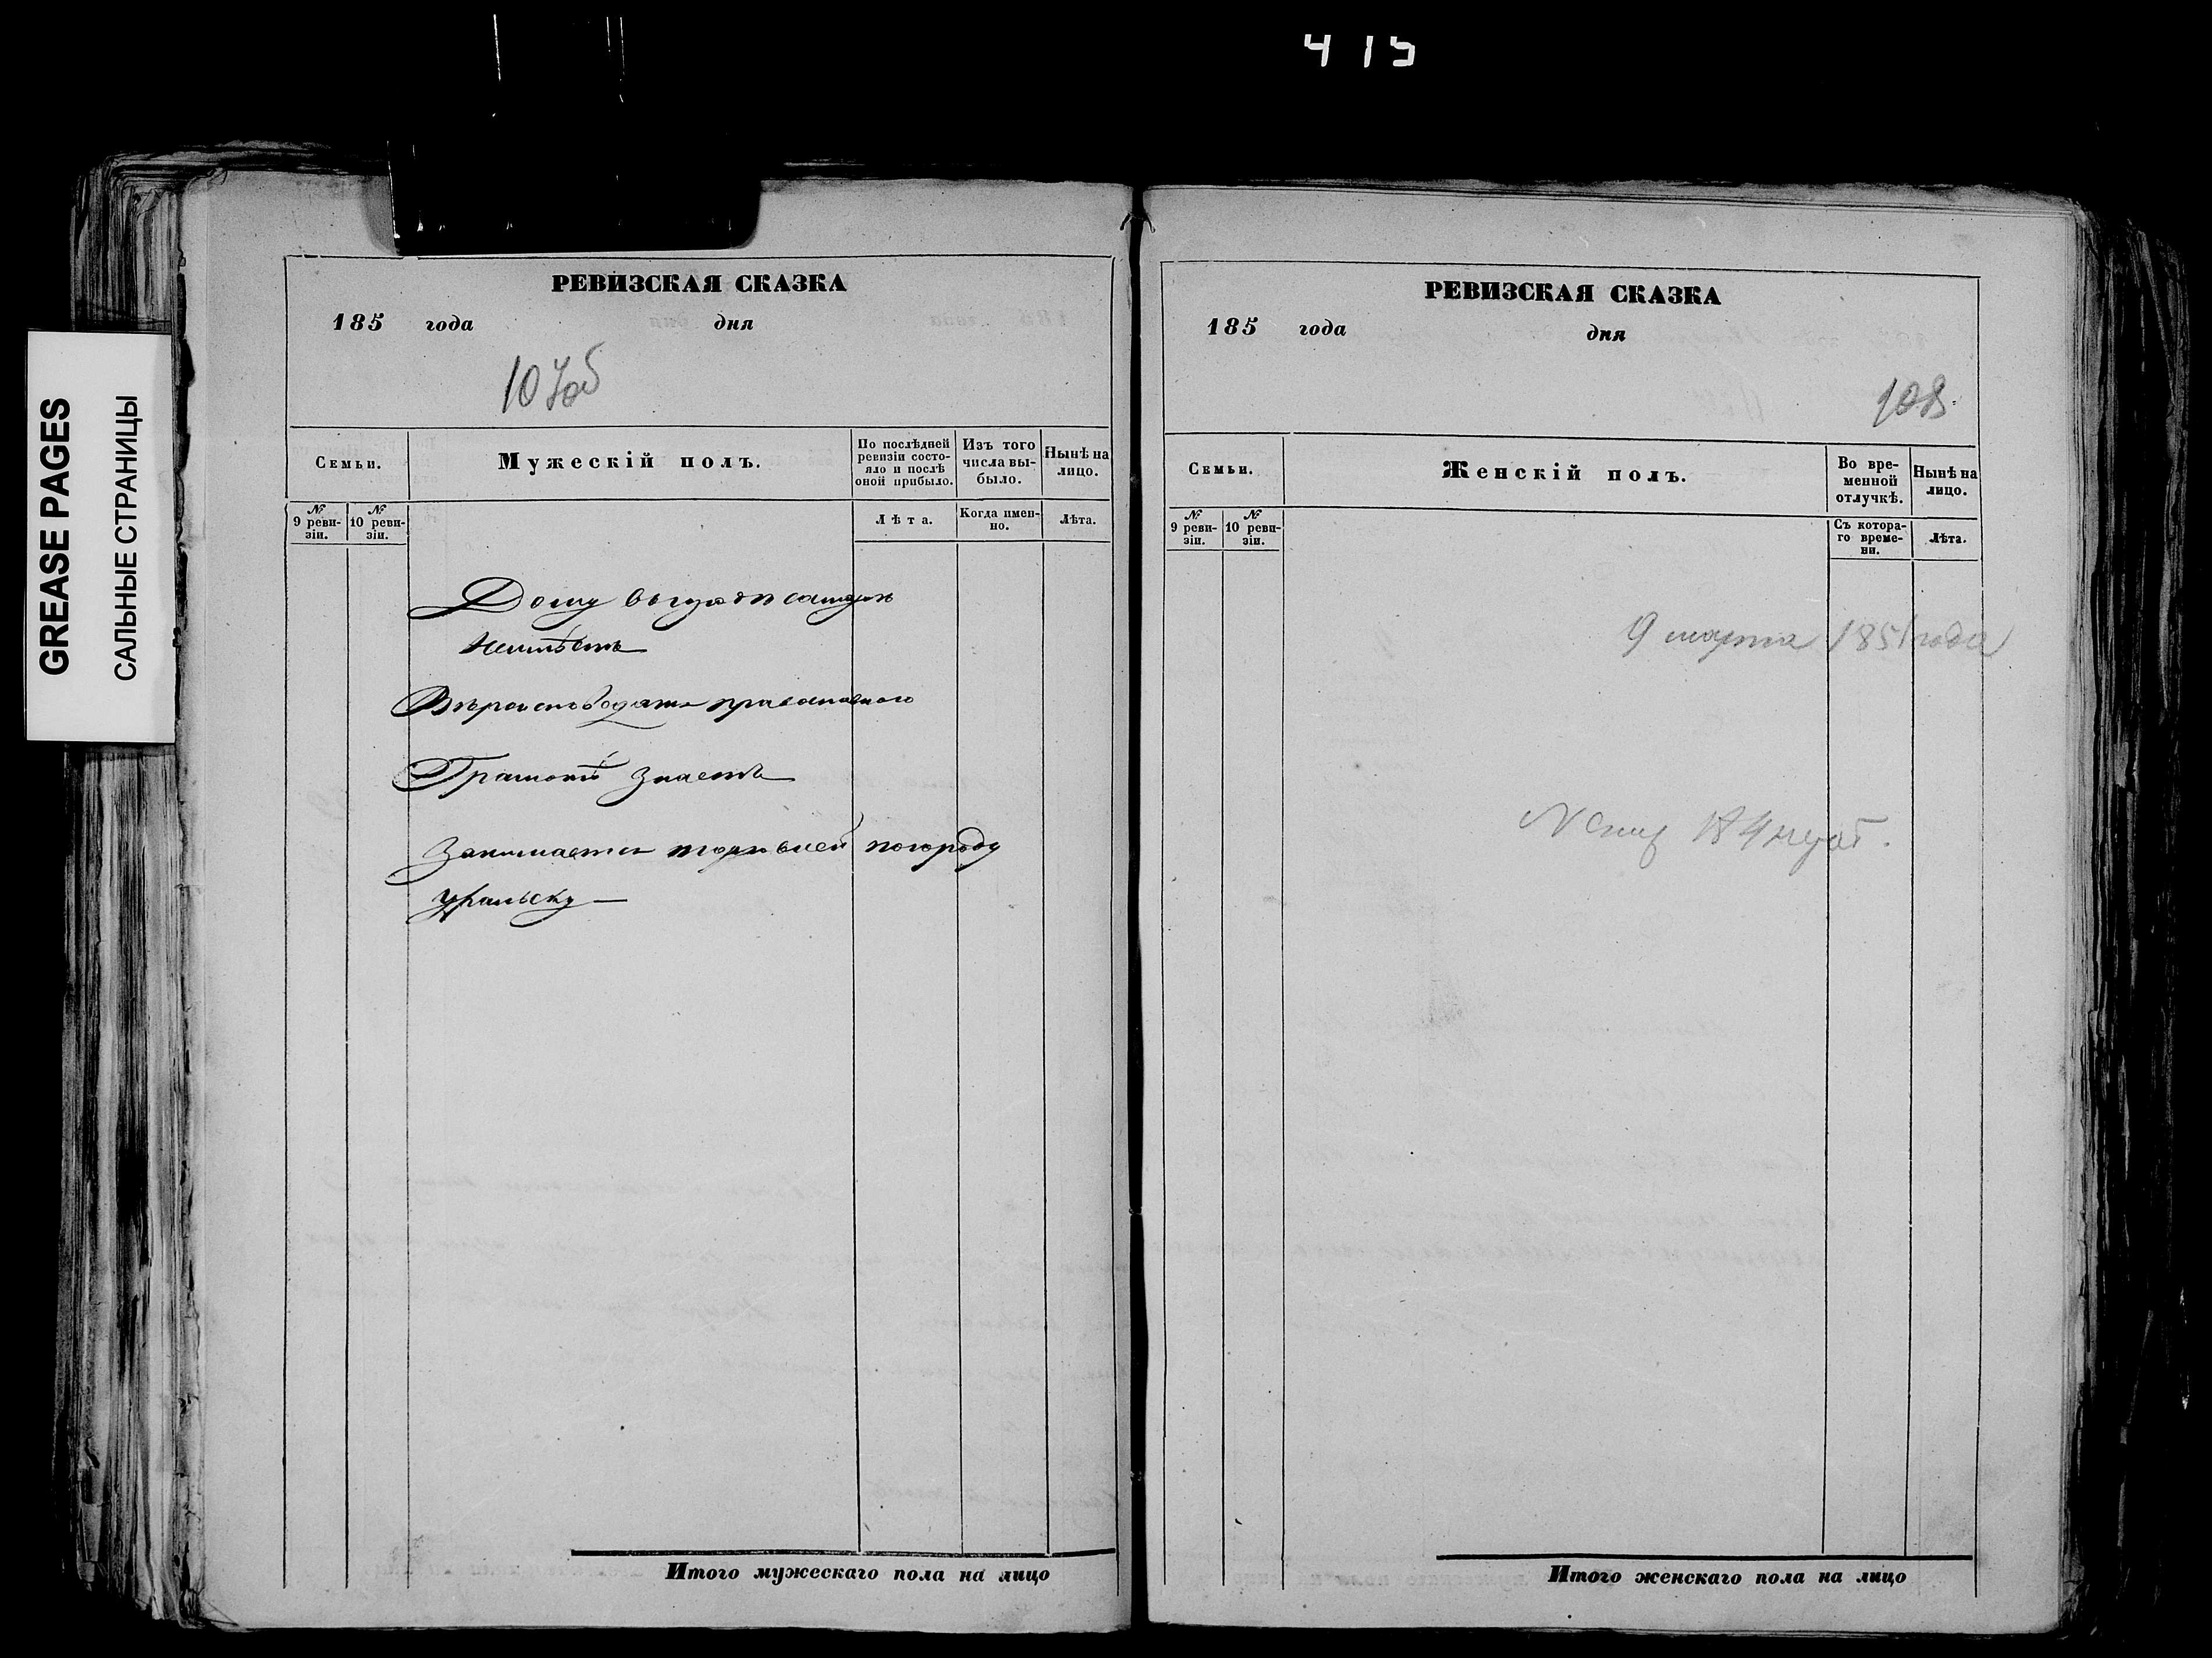 415
GREASE PAGES
САЛЬНЫЕ СТРАНИЦЫ
РЕВИЗСКАЯ СКАЗКА
185 года дня
107об
Семьи.
Мужескій полъ.
По послѣдней ревизіи состояло и послѣ оной прибыло.
Изъ того числа выбыло.
Нынѣ на лицо.
№ 9 ревизіи.
№ 10 ревизіи.
Лѣта.
Когда именно.
Лѣта.
Дому
неимѣетъ
Вѣроисповеданія православнаго
Грамотѣ знаетъ
Занимается торговлей погороду
Уральску
Итого мужескаго пола на лицо
РЕВИЗСКАЯ СКАЗКА
185 года дня
108.
Семьи.
Женскій полъ.
Во временной отлучкѣ.
Нынѣ на лицо.
№ 9 ревизіи.
№ 10 ревизіи.
Съ котораго времени.
Лѣта.
9 марта 1851 года
Итого женскаго пола на лицо